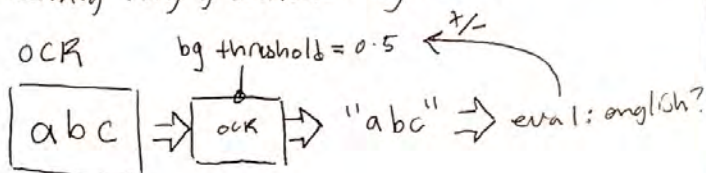 +/-
OCR bg threshold = 0.5
abc OCR "abc" eval: english?